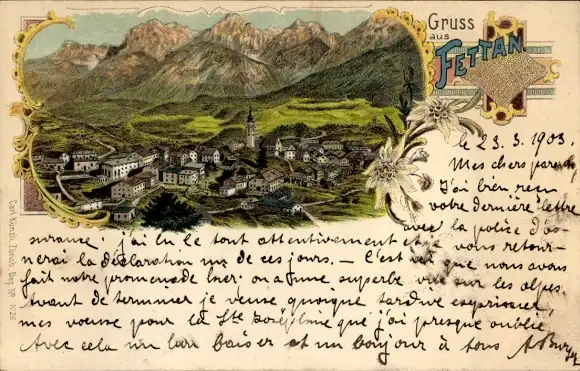 Gruss
aus
FETTAN.
le 23.3.1903
Mes chers parents
J'ai bien reçu
votre dernière lettre
avec la police d'as-
surance. j'ai lu le tout attentivement et je vous retour-
nerai la déclaration un de ces jours. - C'est que nous avons
fait notre promenade hier. on a une superbe vue sur les alpes
avant de terminer je veux quoique tardive exprimer
mes voeux pour la Ste Joséphine que j'ai presque oublié
Avec cela un bon baiser et un bonjour à tous A
Carl Künzli, Zürich, Dep. No. 1020